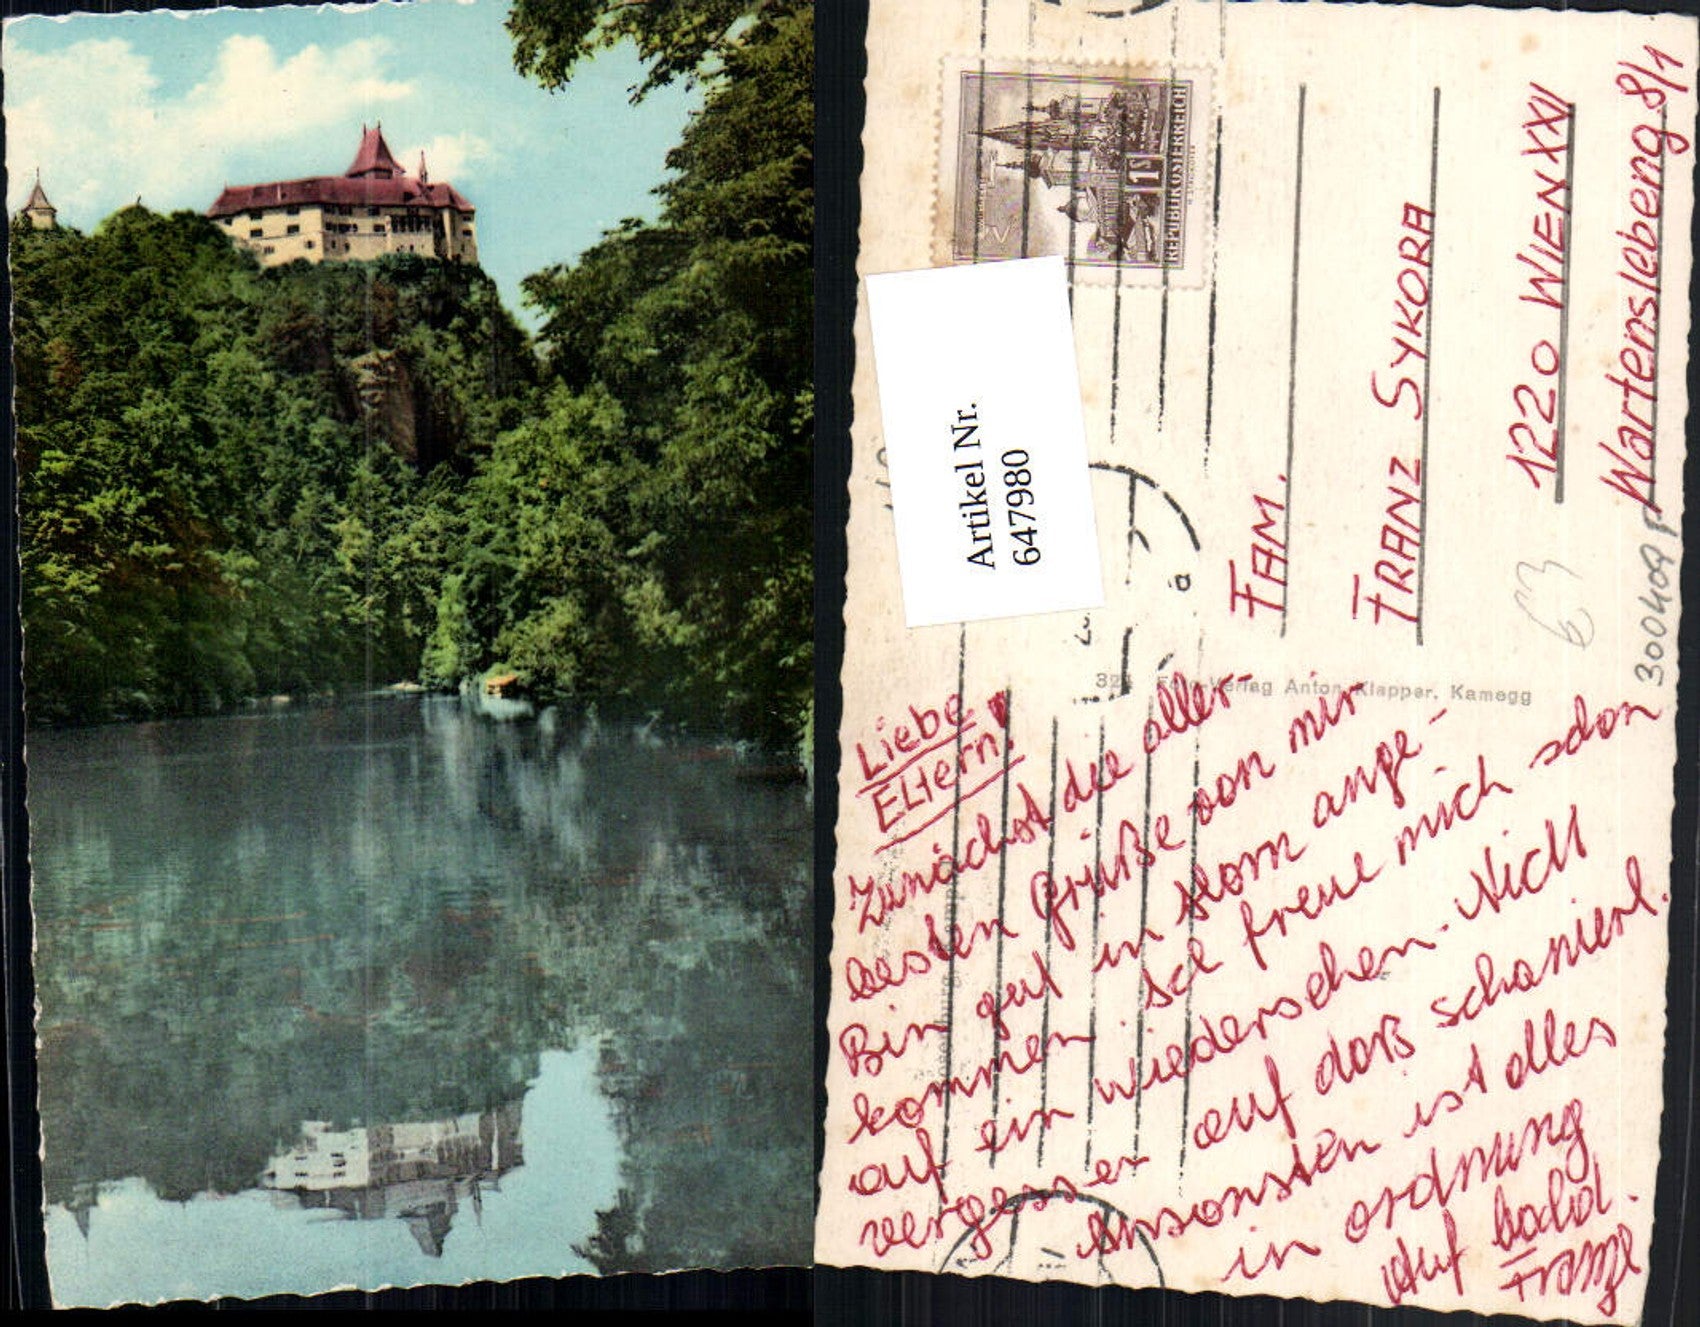 REPUBLIK ÖSTERREICH
1S
Artikel Nr.
647980
FAM.
FRANZ SYKORA
1220 WIEN XXII
Wartenslebeng. 8/1
63
300409 F
Foto-Verlag Anton Klapper, Kamegg
Liebe
Eltern!
Zunächst die aller-
besten Grüße von mir
Bin gut in Horn ange-
kommen. Ich freue mich schon
auf ein wiedersehen. Nicht
vergessen auf das schanierl.
Ansonsten ist alles
in ordnung
Auf bald.
Franzl